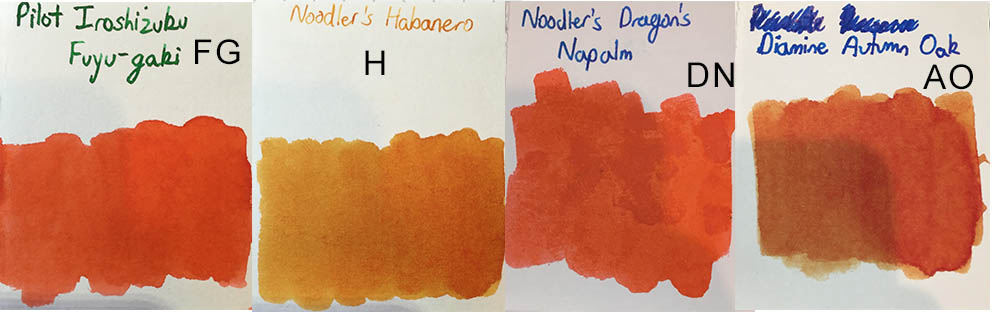 Pilot Iroshizuku
Fuyu-gaki
FG
Noodler's Habanero
H
Noodler's Dragon's
Napalm
DN
Diamine Autumn Oak
AO